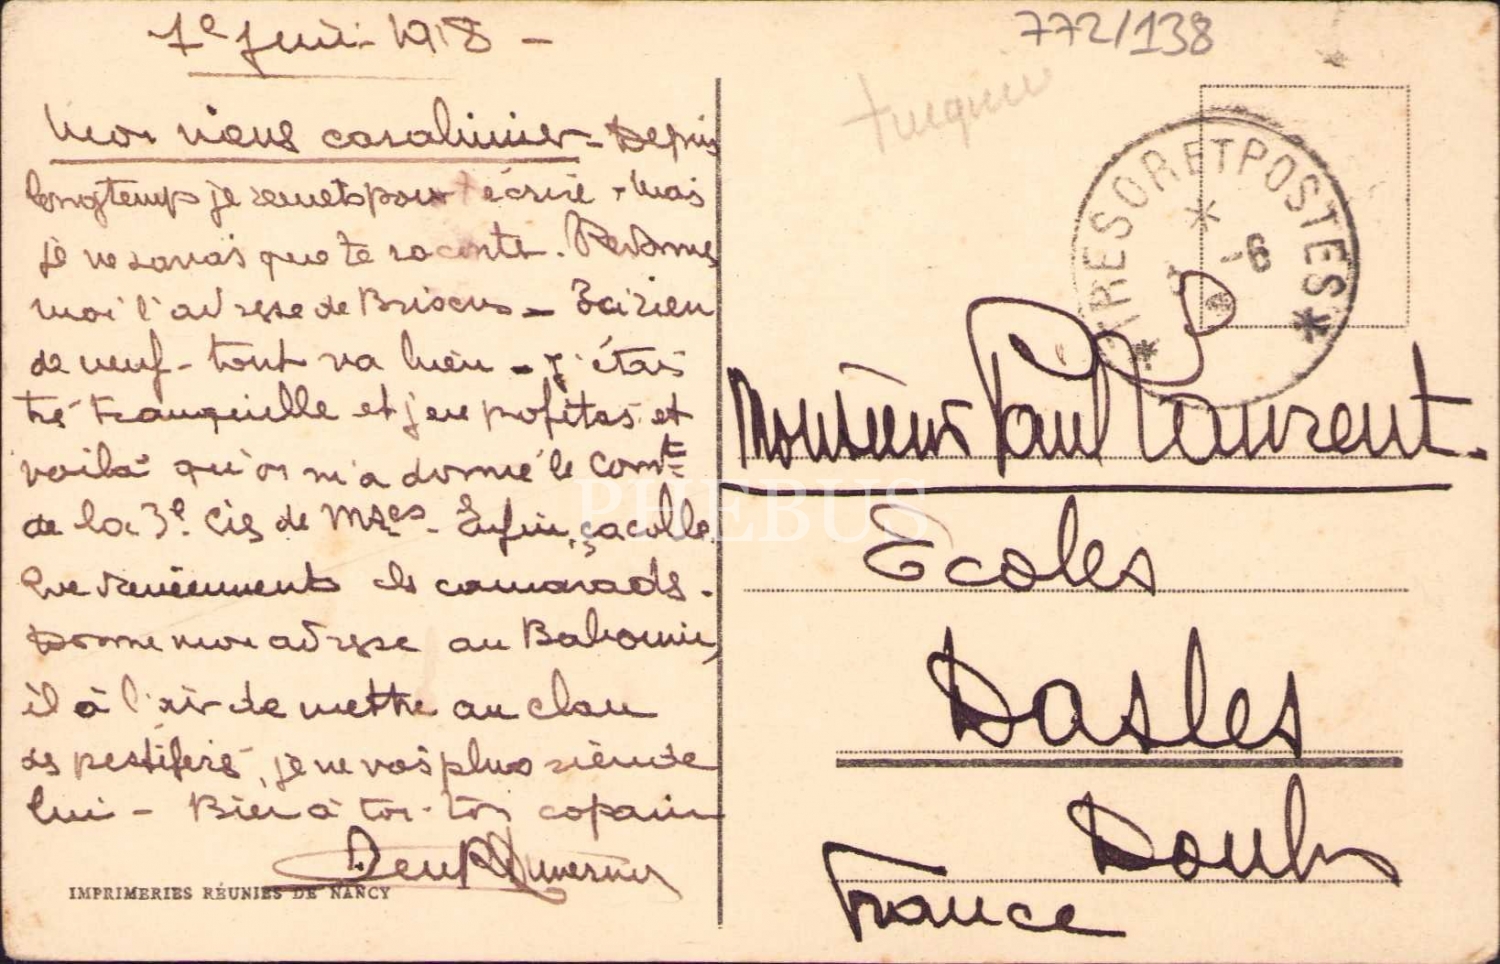 1e Juin 1918 -
772/138
turquie
Mon vieux carabinier - Depuis
longtemps je remets pour t'écrire - Mais
je ne savais que te raconter. Redonne
moi l'adresse de Briscus - Ici rien
de neuf - tout va bien - J'étais
très tranquille et j'en profitais et
voilà qu'on m'a donné le Comt
de la 3e Cie de Mses - Enfin, ça colle
de camarads.
Donne mon adresse au
il à l'air de mettre au clou
des pestiférés, je ne vois plus rien de
lui - Bien à toi - Ton copain
IMPRIMERIES RÉUNIES DE NANCY
TRESOR ET POSTES
* -6
* *
Monsieur Paul Laurent.
Ecoles
Dasles
Doubs
France
PHEBUS